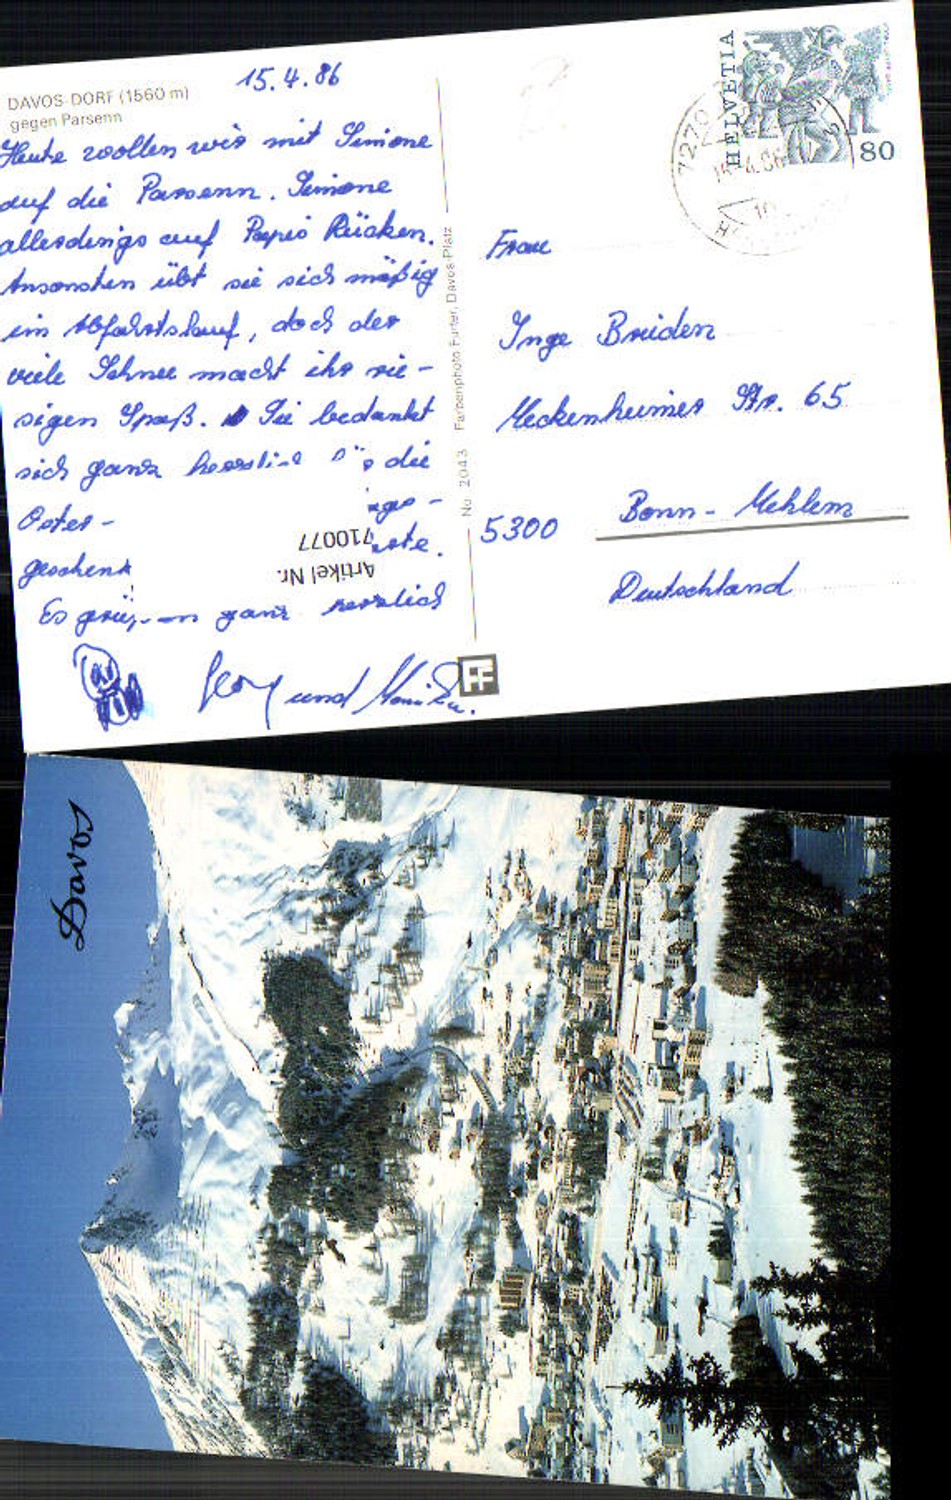 DAVOS-DORF (1560 m)
gegen Parsenn
15.4.86
Heute wollen wir mit Simone
auf die Parsenn. Simone
allerdings auf Papis Rücken.
Ansonsten übt sie sich mäßig
im Abfahrtslauf, doch der
viele Schnee macht ihr rie-
sigen Spaß. Sie bedankt
sich ganz herzlich die
Oster-
geschenk
Es ganz herzlich
und Monika.
Artikel Nr.
710077
No. 2043 Farbenphoto Furter, Davos-Platz
FF
HELVETIA
80
7270
Frau
Inge Breiden
Meckenheimer Str. 65
5300 Bonn-Mehlem
Deutschland
Davos